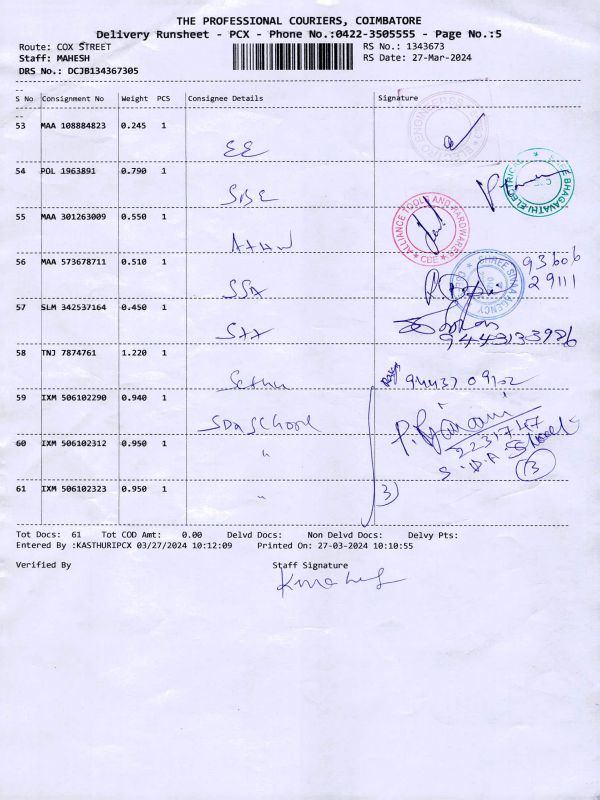 THE PROFESSIONAL COURIERS, COIMBATORE
Delivery Runsheet - PCX - Phone No.:0422-3505555 - Page No.:5
Route: COX STREET RS No.: 1343673
Staff: MAHESH RS Date: 27-Mar-2024
DRS No.: DCJB134367305
S No Consignment No Weight PCS Consignee Details Signature
53 MAA 108884823 0.245 1
EE
54 POL 1963891 0.790 1
SBE
SHREE BHAGAVATHI ELECTRICAL
55 MAA 301263009 0.550 1
ALLIANCE TOOLS AND HARDWARES
* CBE *
56 MAA 573678711 0.510 1
SSA
SHREE SIVA AGENCY
93606
29111
57 SLM 342537164 0.450 1
9443133986
58 TNJ 7874761 1.220 1
Sethu
94437 09102
59 IXM 506102290 0.940 1
SDA School
60 IXM 506102312 0.950 1
"
S.D.A. School
3
61 IXM 506102323 0.950 1
"
3)
Tot Docs: 61 Tot COD Amt: 0.00 Delvd Docs: Non Delvd Docs: Delvy Pts:
Entered By :KASTHURIPCX 03/27/2024 10:12:09 Printed On: 27-03-2024 10:10:55
Verified By Staff Signature
K Mahesh